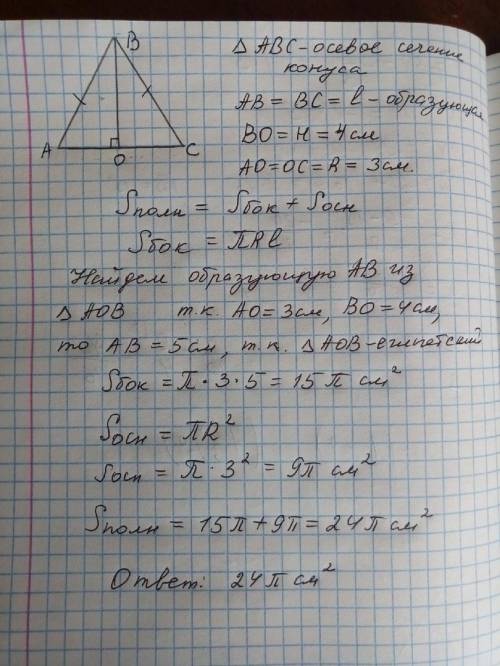 B
A
O
C
Δ ABC - осевое сечение
конуса
AB = BC = l - образующая
BO = H = 4 см
AO = OC = R = 3 см.
Sполн = Sбок + Sосн
Sбок = πRl
Найдем образующую AB из
Δ AOB т.к. AO = 3 см, BO = 4 см,
то AB = 5 см, т.к. Δ AOB - египетский
Sбок = π · 3 · 5 = 15 π см²
Sосн = πR²
Sосн = π · 3² = 9π см²
Sполн = 15π + 9π = 24π см²
Ответ: 24π см²